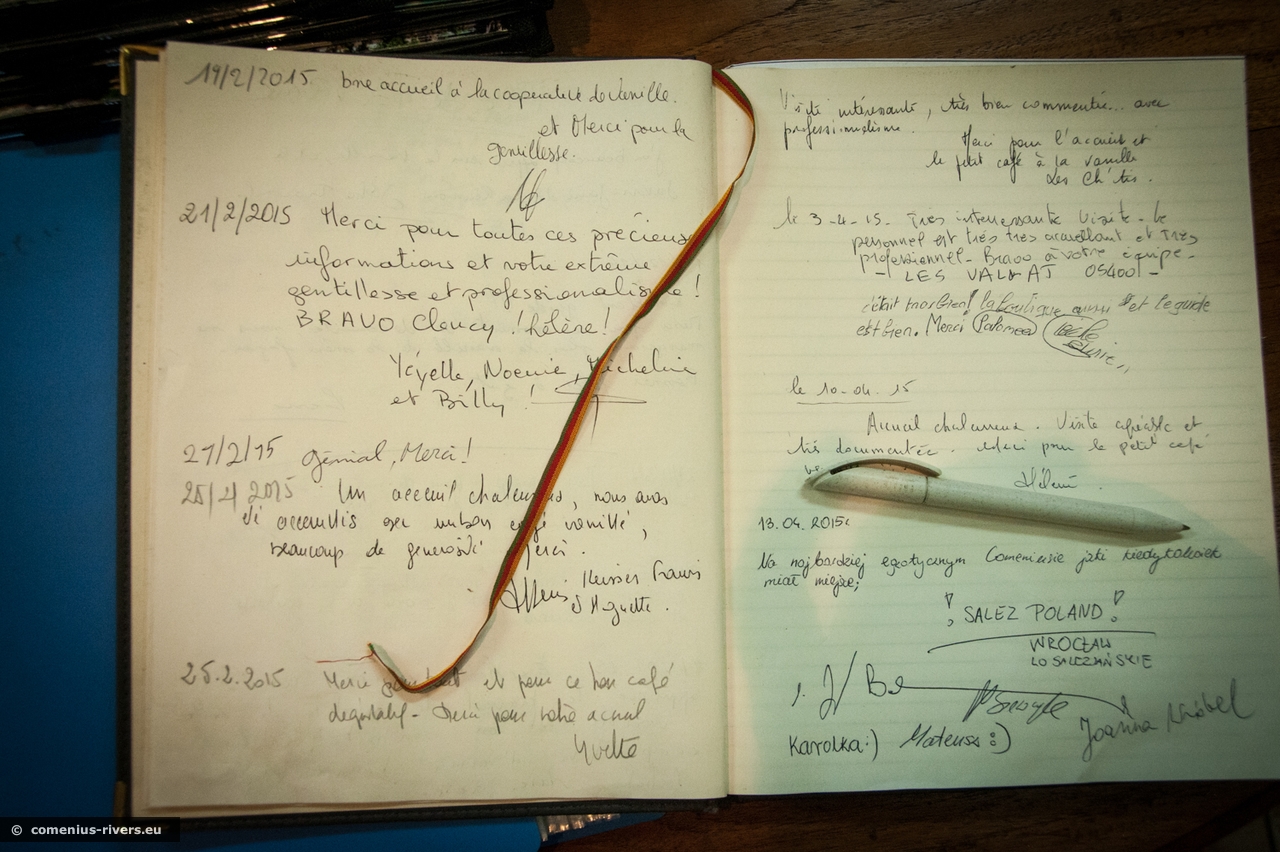 19/2/2015 bne accueil à la cooperative de vanille.
et Merci pour la
gentillesse.
21/2/2015 Merci pour toutes ces précieuses
informations et votre extrême
gentillesse et professionalisme !
BRAVO Clency ! hélène !
Noémie, Micheline
et Billy !
21/2/15 Génial, Merci !
2015 Un acceuil chaleureux, nous avos
accueillis par un bon café vanillé,
beaucoup de generosité Merci.
et Huguette.
25.2.2015 Merci et pour ce bon café
Merci pour votre acceuil
Yvette
Visite intéressante, très bien commentée... avec
professionnalisme.
Merci pour l'accueil et
le petit café à la vanille
Les Ch'tis.
le 3-4-15. Très interressante visite. Le
personnel est très très accueillant et très
professionnel. Bravo à votre équipe.
- LES 05400 -
c'était trop bien! la boutique aussi et le guide
est bien. Merci
le 10-04.15
Accueil chaleureux. Visite agréable et
très documentée. Merci pour le petit café
Hélène.
13.04.2015r
Na najbardziej egzotycznym Comeniusie jaki kiedykolwiek
miał miejsce;
! SALEZ POLAND !
WROCŁAW
LO SALEZJAŃSKIE
Karolka:) Mateusz:)
Joanna
© comenius-rivers.eu